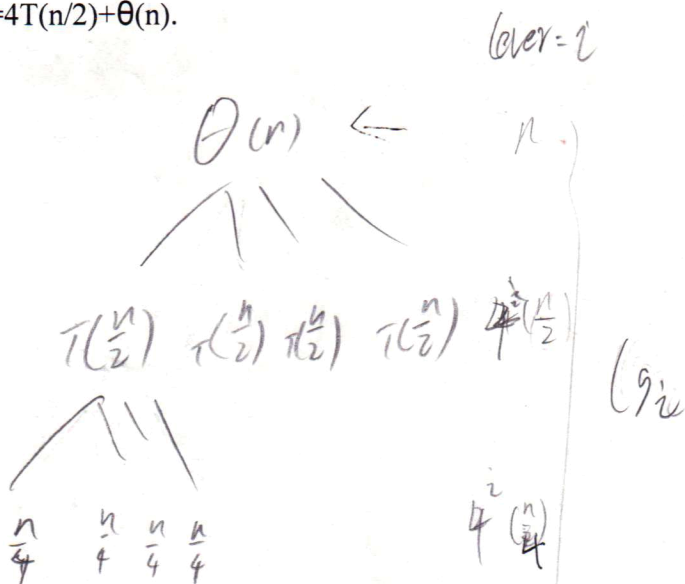 =4T(n/2)+θ(n).
level = i
θ(n) ← n
T(n/2) T(n/2) T(n/2) T(n/2) (n/2)
n/4 n/4 n/4 n/4 4^i (n/4)